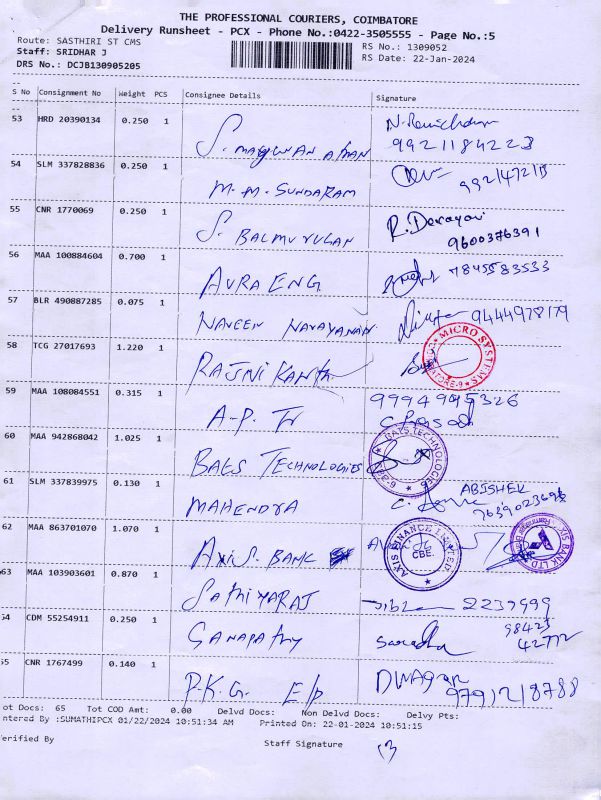 THE PROFESSIONAL COURIERS, COIMBATORE
Delivery Runsheet - PCX - Phone No.:0422-3505555 - Page No.:5
Route: SASTHIRI ST CMS RS No.: 1309052
Staff: SRIDHAR J RS Date: 22-Jan-2024
DRS No.: DCJB130905205
S No Consignment No Weight PCS Consignee Details Signature
53 HRD 20390134 0.250 1
9921184223
54 SLM 337828836 0.250 1 M.M. SUNDARAM
55 CNR 1770069 0.250 1 S. BALMURUGAN R. Devayani
9600376391
56 MAA 100884604 0.700 1 AURA ENG 7845583533
57 BLR 490887285 0.075 1 NAVEEN NARAYANAN 9444978179
MICRO SYSTEMS
58 TCG 27017693 1.220 1 RAJNI KANTH
59 MAA 108084551 0.315 1 A-P. 9994995326
60 MAA 942868042 1.025 1 BAES TECHNOLOGIES
BAES TECHNOLOGIES
61 SLM 337839975 0.130 1 MAHENDRA ABISHEK
62 MAA 863701070 1.070 1 AXIS BANK
AXIS FINANCE LIMITED
CBE.
AXIS BANK LTD
63 MAA 103903601 0.870 1 SATHIYARAJ 2237999
54 CDM 55254911 0.250 1 GANAPATHY Saradha 98423
42772
55 CNR 1767499 0.140 1 P.K.G. E/p
9791218788
ot Docs: 65 Tot COD Amt: 0.00 Delvd Docs: Non Delvd Docs: Delvy Pts:
ntered By :SUMATHIPCX 01/22/2024 10:51:34 AM Printed On: 22-01-2024 10:51:15
erified By Staff Signature 13